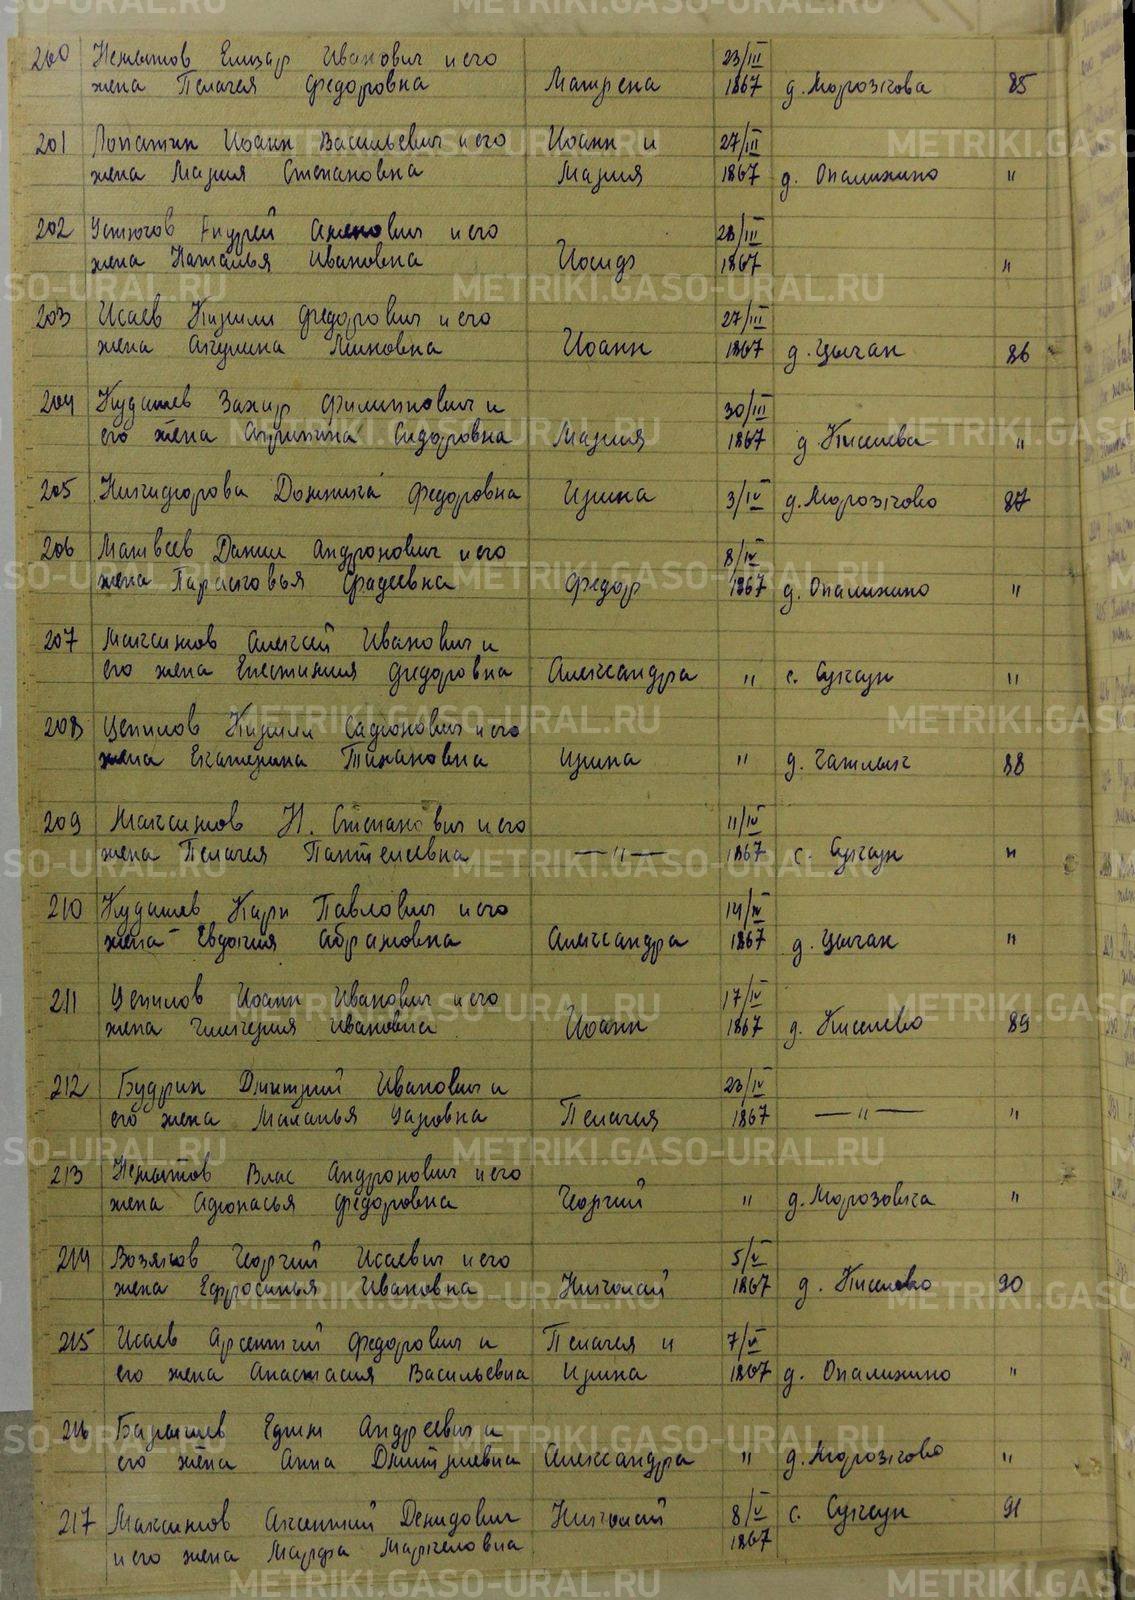 METRIKI.GASO-URAL.RU
200 Некытов Елизар Иванович и его 23/III
жена Пелагея Федоровна Матрена 1867 д. Морозкова 85
201 Лопатин Иоанн Васильевич и его Иоанн и 27/III
жена Мария Степановна Мария 1867 д. Опалихино "
202 Устюгов Андрей Аменович и его 28/III
жена Наталья Ивановна Иосиф 1867 "
203 Исаев Кирилл Федорович и его 27/III
жена Акулина Миновна Иоанн 1867 д. Цыган 86
204 Кудашев Захар Филиппович и 30/III
его жена Агрипина Сидоровна Мария 1867 д. Киселева "
205 Никифорова Домника Федоровна Ирина 3/IV д. Морозково 87
206 Матвеев Данил Андронович и его 8/IV
жена Парасковья Фадеевна Федор 1867 д. Опалихино "
207 Максимов Алексей Иванович и
его жена Епестимия Федоровна Александра " с. Суксун "
208 Цепилов Кирилл Сафонович и его
жена Екатерина Тихановна Ирина " д. Чатлык 88
209 Максимов И. Степанович и его 11/IV
жена Пелагея Пантелеевна — " — 1867 с. Суксун "
210 Кудашев Карп Павлович и его 14/IV
жена Евдокия Абрамовна Александра 1867 д. Цыган "
211 Цепилов Иоанн Иванович и его 17/IV
жена Гликерия Ивановна Иоанн 1867 д. Киселево 89
212 Будрин Дмитрий Иванович и 23/IV
его жена Маланья Уаровна Пелагея 1867 — " — "
213 Некытов Влас Андронович и его
жена Афонасья Федоровна Георгий " д. Морозовка "
214 Возяков Георгий Исаевич и его 5/V
жена Ефросинья Ивановна Николай 1867 д. Киселево 90
215 Исаев Арсентий Федорович и Пелагея и 7/V
его жена Анастасия Васильевна Ирина 1867 д. Опалихино "
216 Барышев Ефим Андреевич и
его жена Анна Дмитриевна Александра " д. Морозково "
217 Максимов Аксентий Демидович Николай 8/V с. Суксун 91
и его жена Марфа Маркеловна 1867